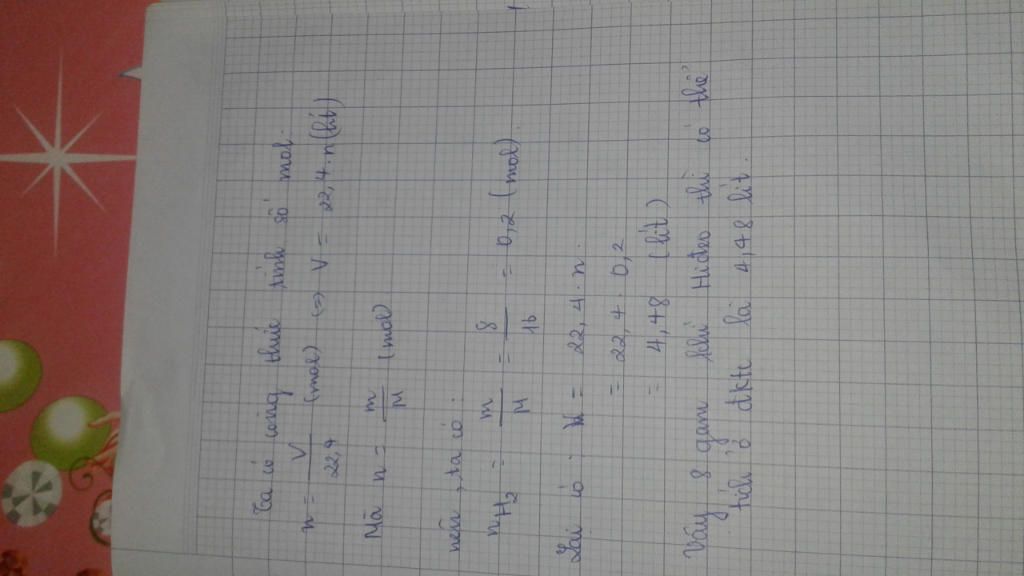 Ta có công thức tính số mol.
n = V/22,4 (mol) (=> V = 22,4 . n (lít)
Mà n = m/M (mol)
nên, ta có :
nH2 = m/M = 8/16 = 0,2 (mol).
Lại có : V = 22,4 . n.
= 22,4 . 0,2
= 4,48 (lít)
Vậy 8 gam khí Hiđro thì có thể
tích ở đktc là 4,48 lít.